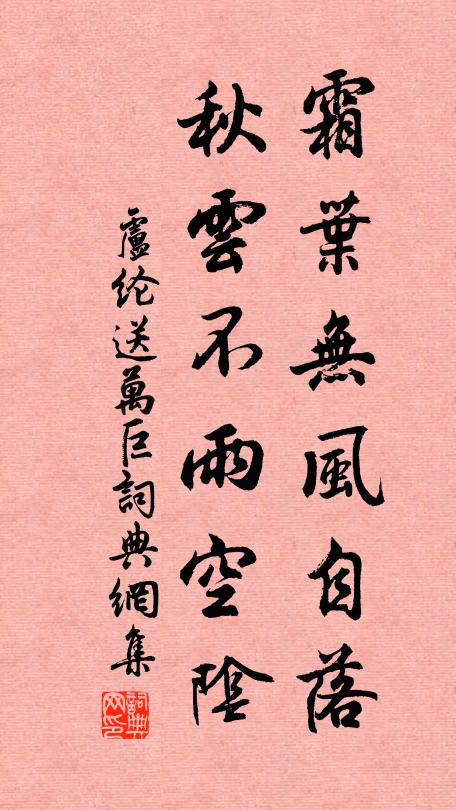 霜葉無風自落
秋雲不雨空陰
盧纶送萬巨詞典網集
詞典网印